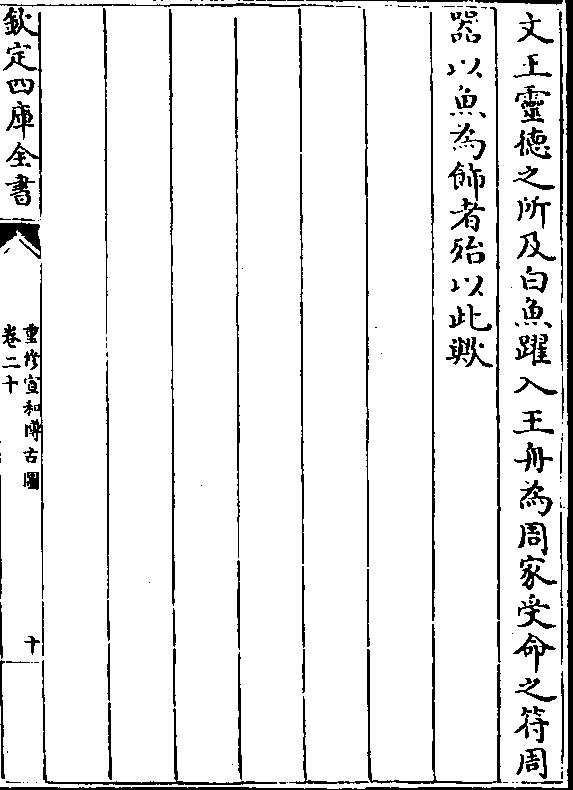 文王靈德之所及白魚躍入王舟為周家受命之符周
器以魚為飾者殆以此歟
欽定四庫全書
重修宣和博古圖
卷二十
十